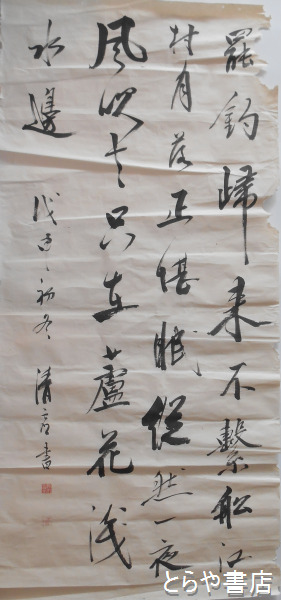 罷釣歸来不繫船江
村月落正堪眠縱然一夜
風吹去只在蘆花淺
水邊 戊 初冬 清 書
とらや書店